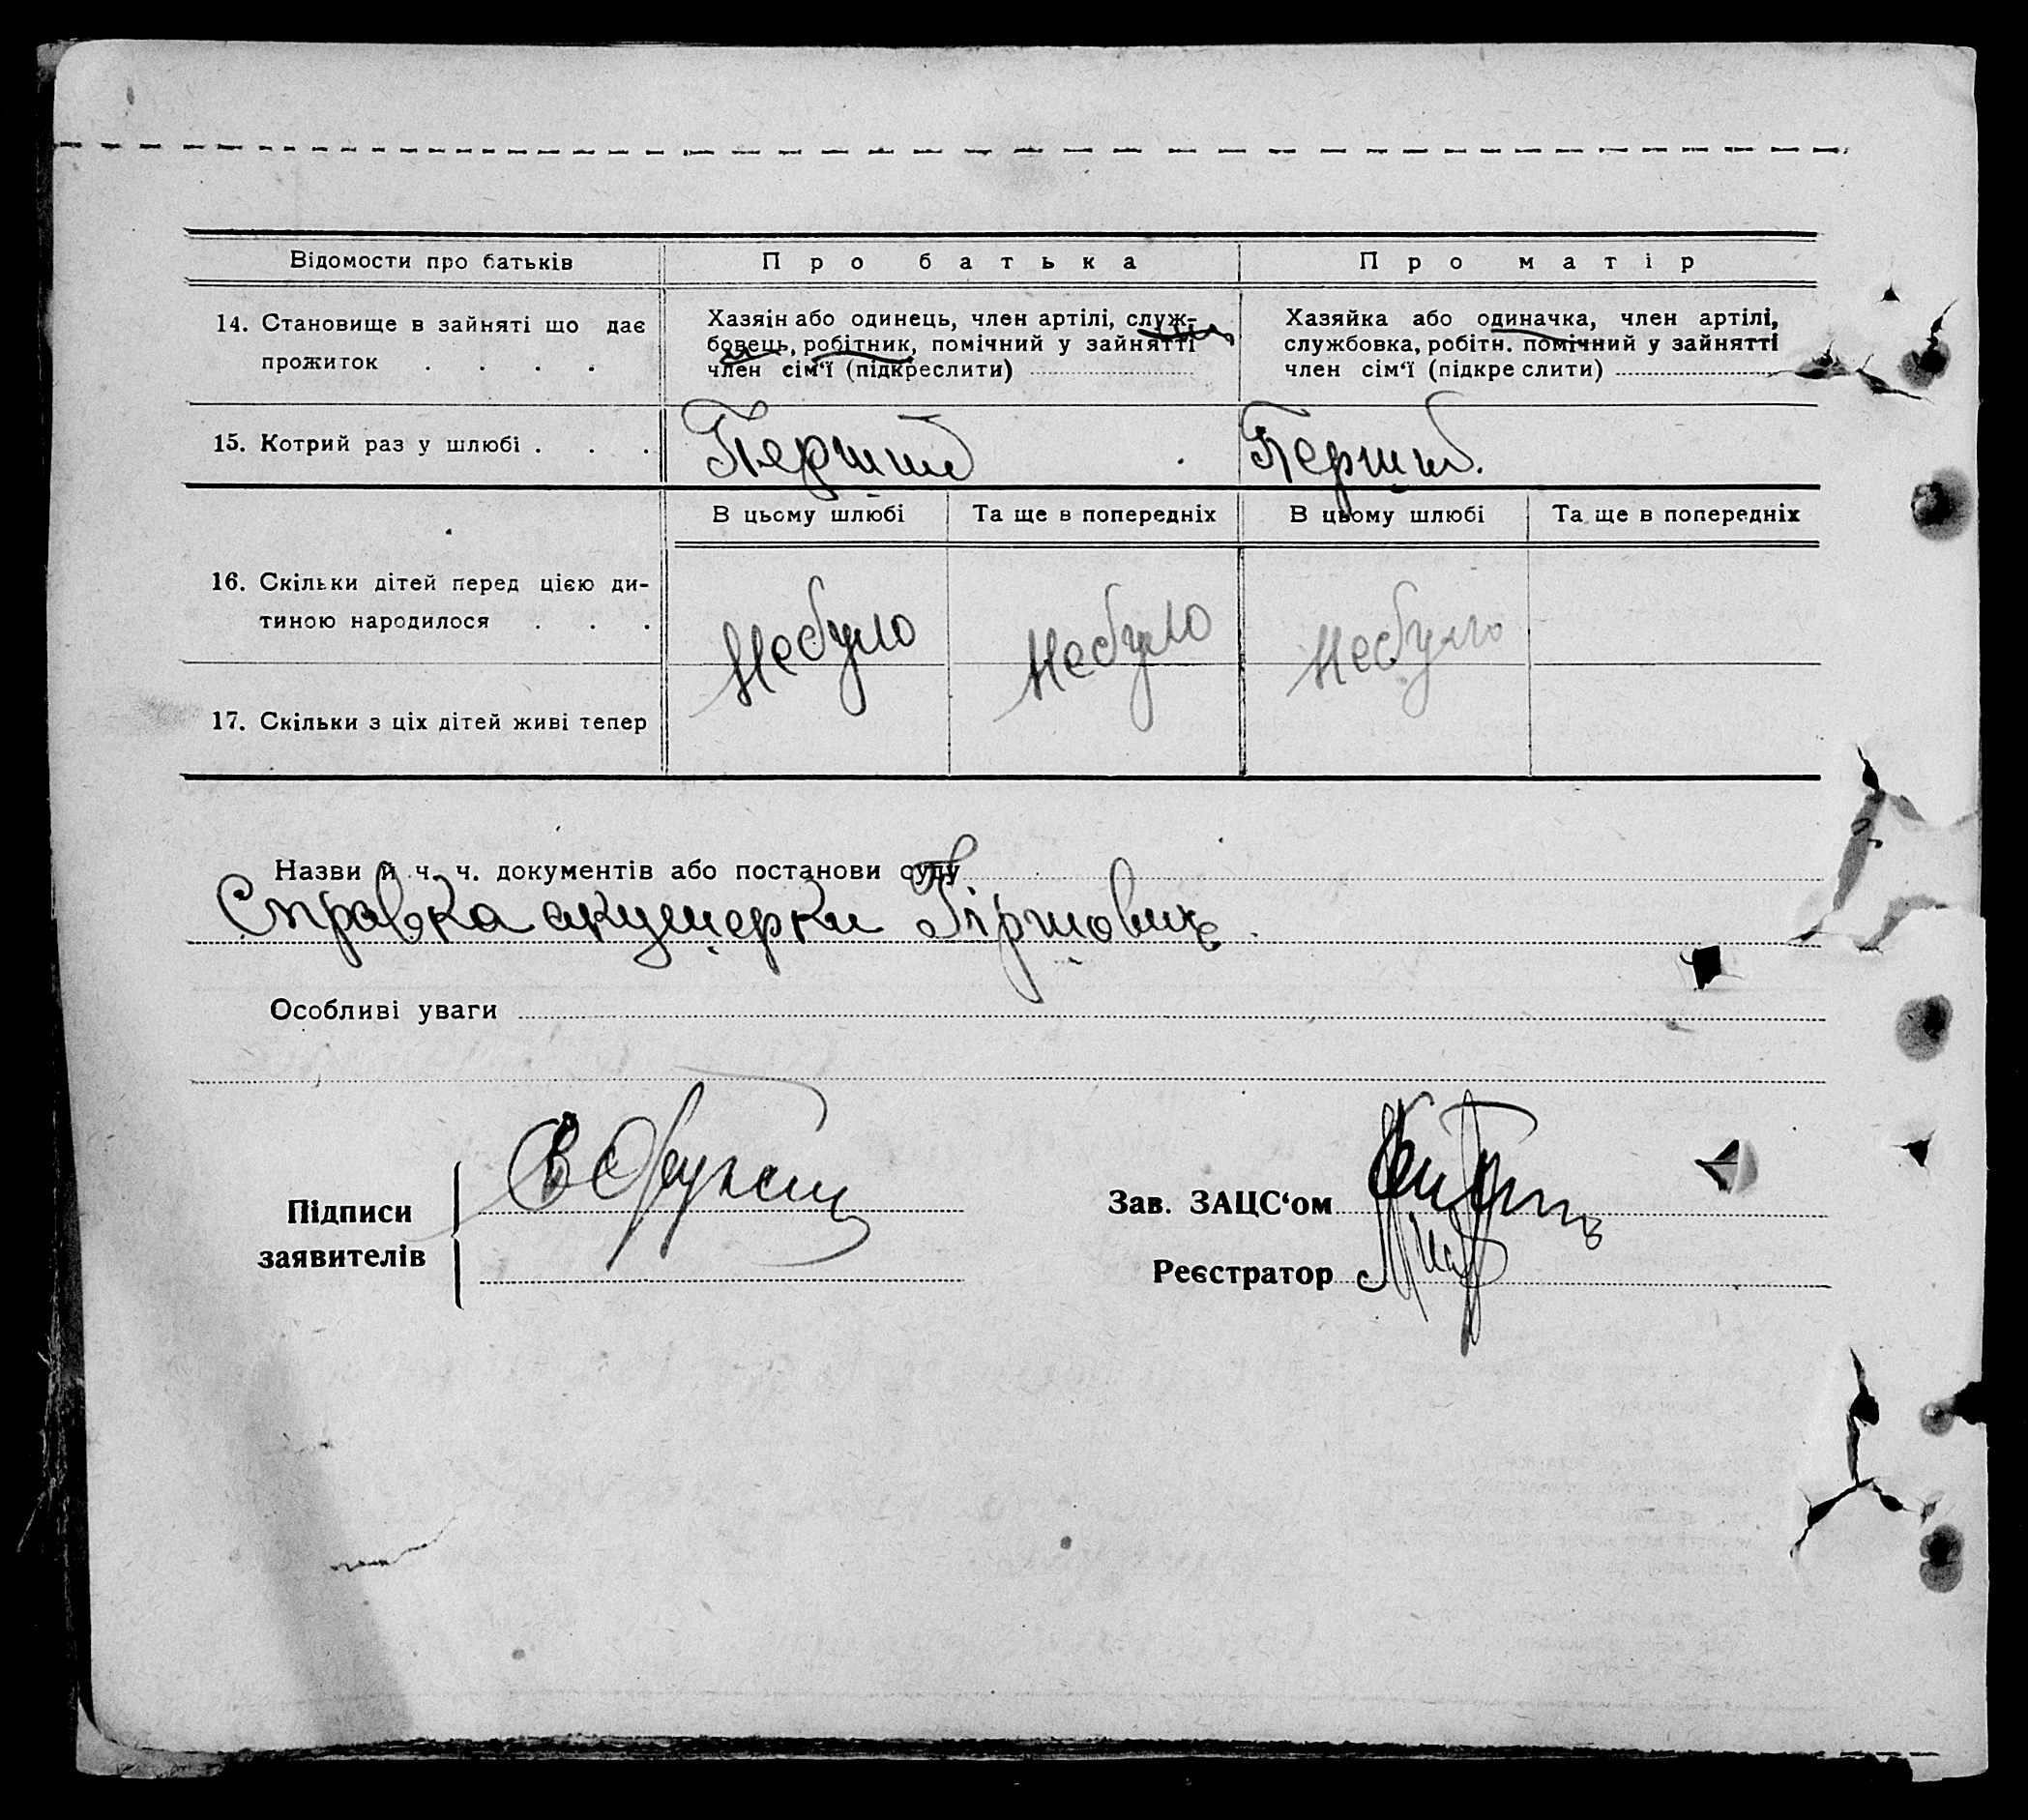 Відомости про батьків
Про батька
Про матір
14. Становище в зайняті що дає
прожиток . . . .
Хазяїн або одинець, член артілі, служ-
бовець, робітник, помічний у зайнятті
член сім'ї (підкреслити)
Хазяйка або одиначка, член артілі,
службовка, робітн. помічний у зайнятті
член сім'ї (підкреслити)
15. Котрий раз у шлюбі . . .
Перший
Перший.
В цьому шлюбі
Та ще в попередніх
В цьому шлюбі
Та ще в попередніх
16. Скільки дітей перед цією ди-
тиною народилося . . .
Небуло
Небуло
Небуло
17. Скільки з ціх дітей живі тепер
Назви й ч. ч. документів або постанови суду
Справка акушерки Гіршович.
Особливі уваги
Підписи
заявителів
Зав. ЗАЦС'ом
Реєстратор